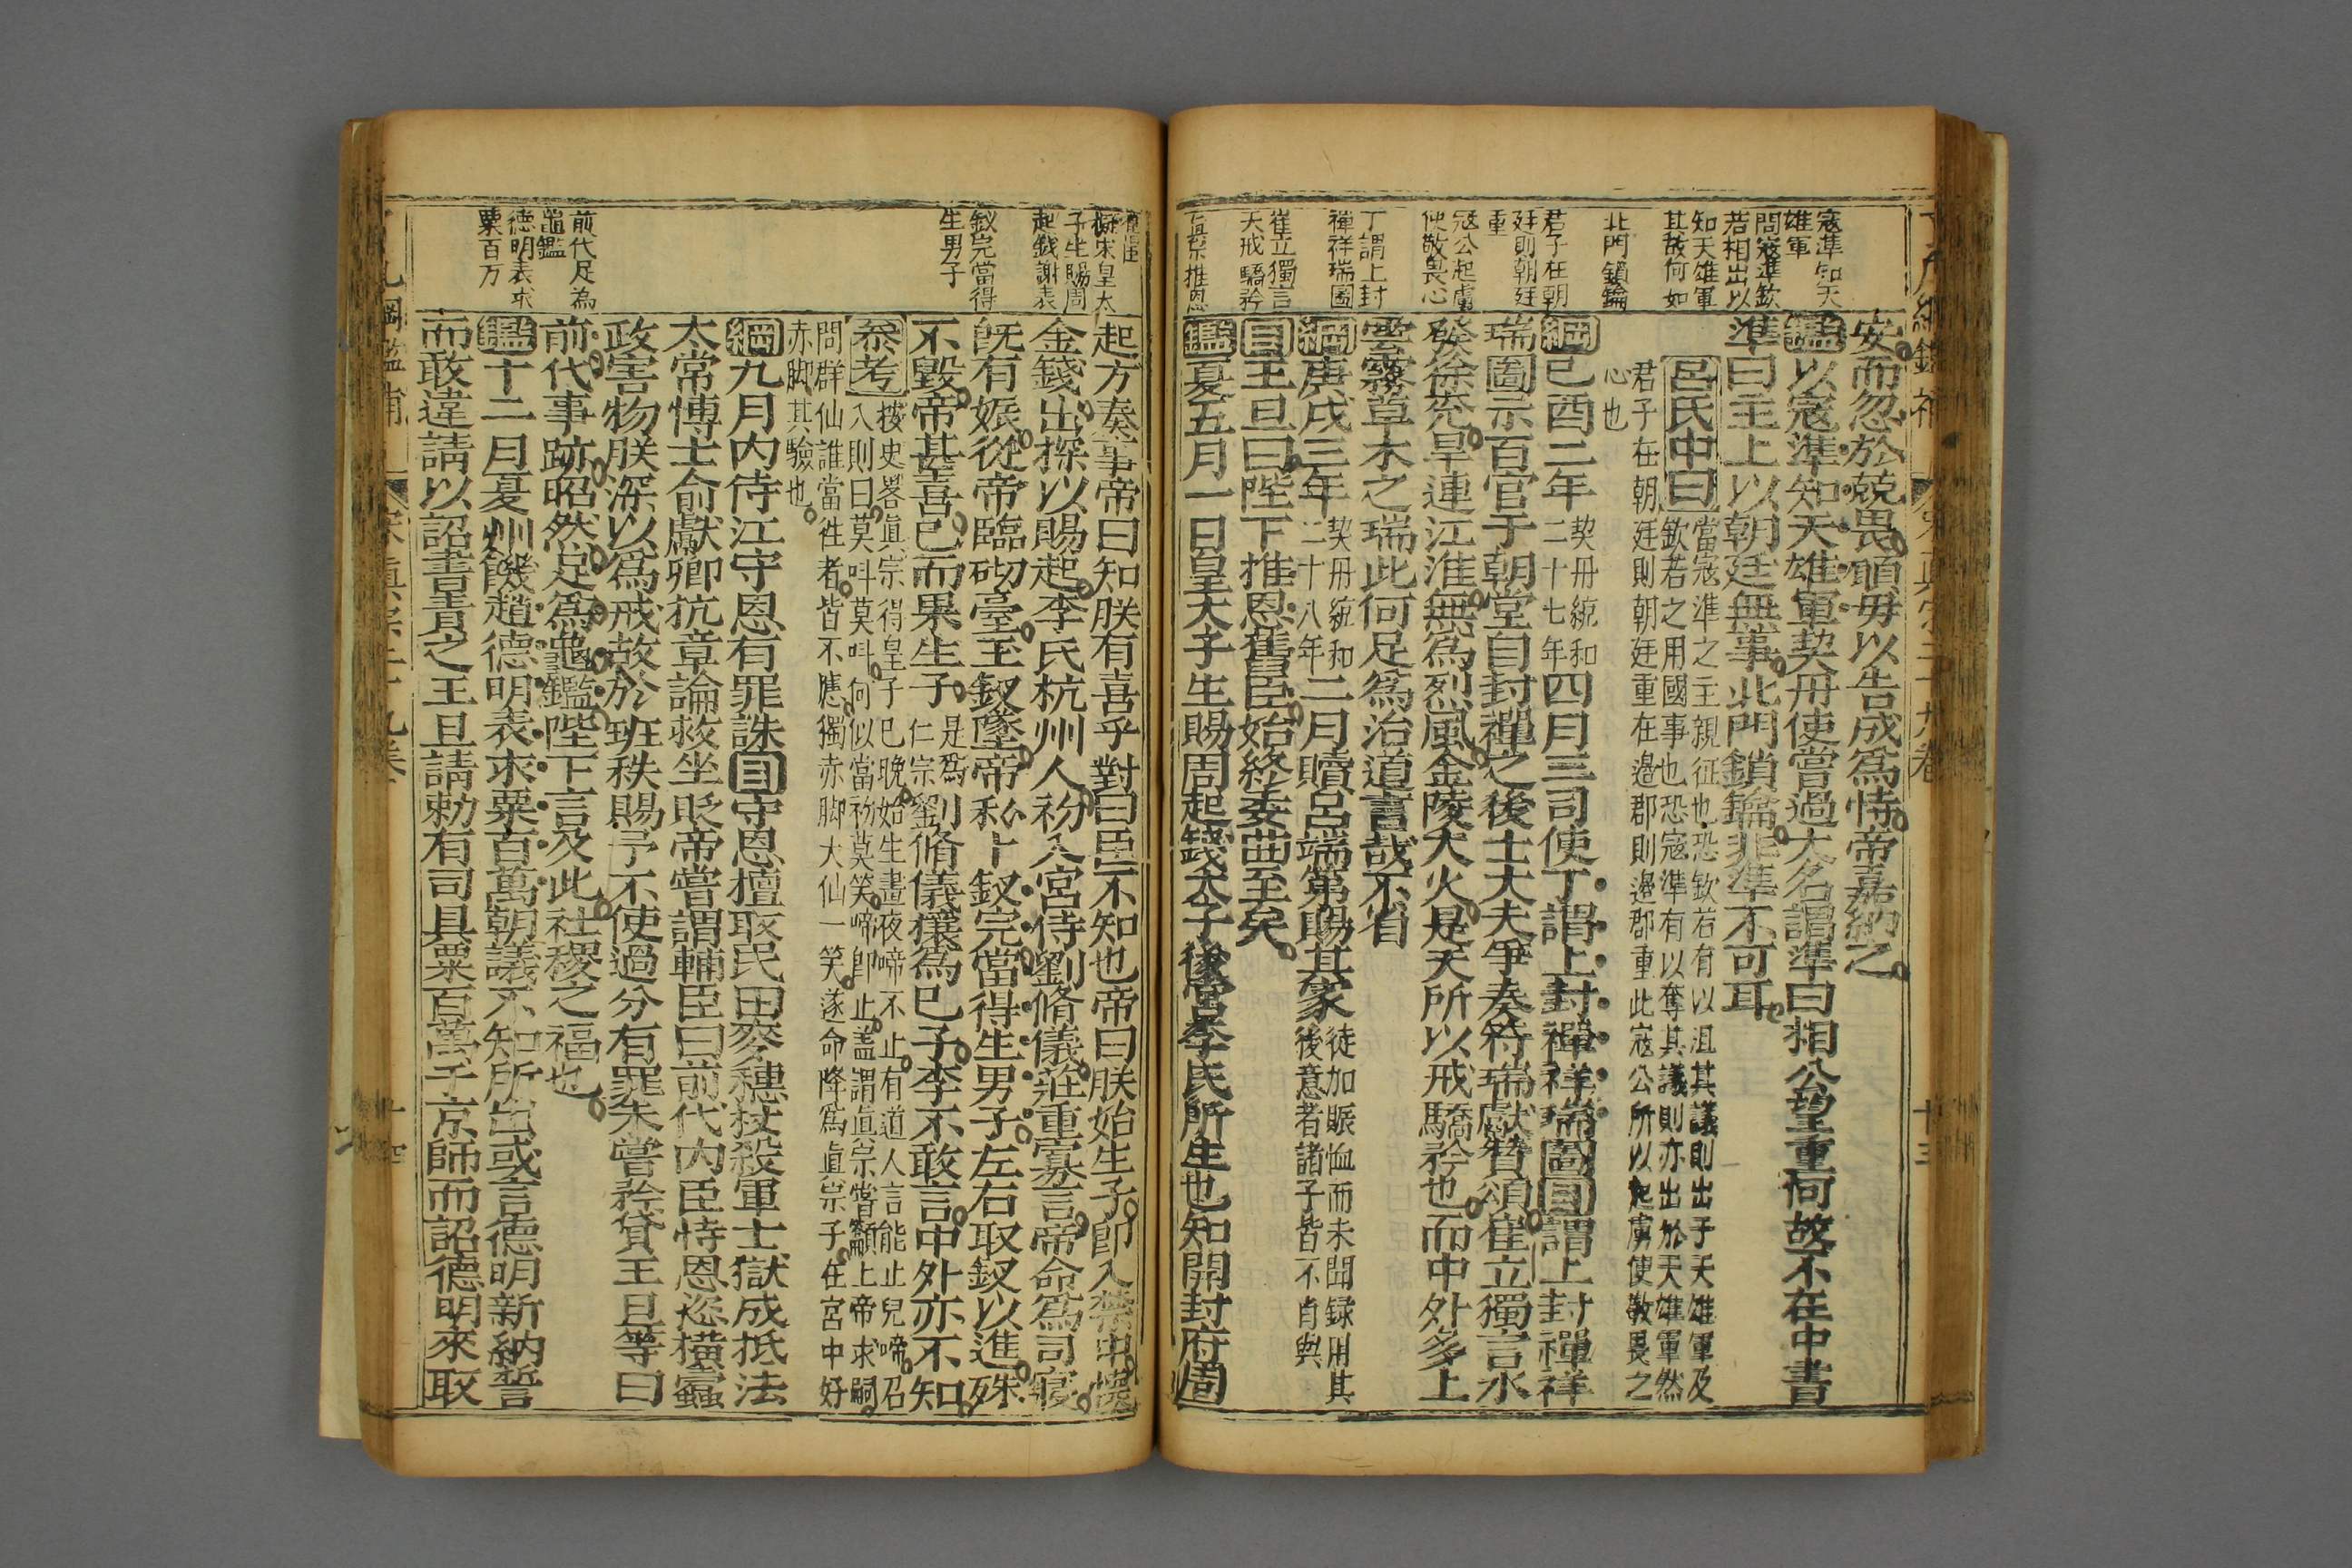 寇準知天
雄軍
問寇準欽
若相出以
知天雄軍
其故何如
北門鎖鑰
君子在朝
廷則朝廷
重
寇公起虜
使敬畏心
丁謂上封
禅祥瑞圖
崔立獨言
天戒驕矜
真宗推恩
安而忽於兢畏願毋以告成爲恃帝嘉納之
鑑以寇準知天雄軍契丹使嘗過大名謂準曰相公望重何故不在中書
準曰主上以朝廷無事北門鎖鑰非準不可耳
呂氏中曰當寇準之主親征也恐欽若有以沮其議則出于天雄軍及
欽若之用國事也恐寇準有以奪其議則亦出於天雄軍然
君子在朝廷則朝廷重在邊郡則邊郡重此寇公所以起虜使敬畏之
心也
綱己酉二年契丹統和二十七年四月三司使丁謂上封禪祥瑞圖目謂上封禪祥
瑞圖示百官于朝堂自封禪之後士大夫爭奏符瑞獻贊頌崔立獨言水
發徐兗旱連江淮無爲烈風金陵大火是天所以戒驕矜也而中外多上
雲霧草木之瑞此何足爲治道言哉不省
綱庚戌三年契丹統和二十八年二月贈呂端第賜其家徒加賑恤而未聞録用其
後意者諸子皆不肖與
目王旦曰陛下推恩舊臣始終委曲至矣
鑑夏五月一日皇太子生賜周起錢太子後宮李氏所生也知開封府周
擬宋皇太
子生賜周
起錢謝表
釵完當得
生男子
前代足為
龜鑑
德明表求
粟百万
起方奏事帝曰知朕有喜乎對曰臣不知也帝曰朕始生子卽入禁中懷
金錢出探以賜起李氏杭州人初入宮侍劉脩儀莊重寡言帝命爲司寢
旣有娠從帝臨砌臺玉釵墜帝私卜釵完當得生男子左右取釵以進殊
不毀帝甚喜已而果生子是爲仁宗劉脩儀攘爲己子李不敢言中外亦不知
叅考按史畧眞宗得皇子已晚始生晝夜啼不止有道人言能止兒啼召
入則曰莫呌莫呌何似當初莫笑啼卽止盖謂眞宗嘗籲上帝求嗣
問群仙誰當徃者皆不應獨赤脚大仙一笑遂命降爲眞宗子在宮中好
赤脚其驗也
綱九月内侍江守恩有罪誅目守恩擅取民田麥穗杖殺軍士獄成抵法
太常博士俞獻卿抗章論救坐貶帝嘗謂輔臣曰前代内臣恃恩恣横蠹
政害物朕深以爲戒故於班秩賜予不使過分有罪未嘗矜貸王旦等曰
前代事跡昭然足爲龜鑑陛下言及此社稷之福也
鑑十二月夏州饑趙德明表求粟百萬朝議不知所出或言德明新納誓
而敢違請以詔書責之王旦請勅有司具粟百萬于京師而詔德明來取